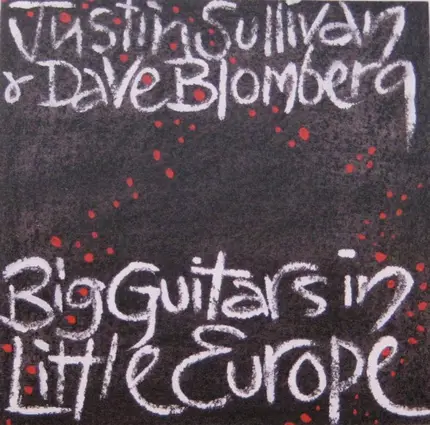 Justin Sullivan
& Dave Blomberg
Big Guitars in
Little Europe